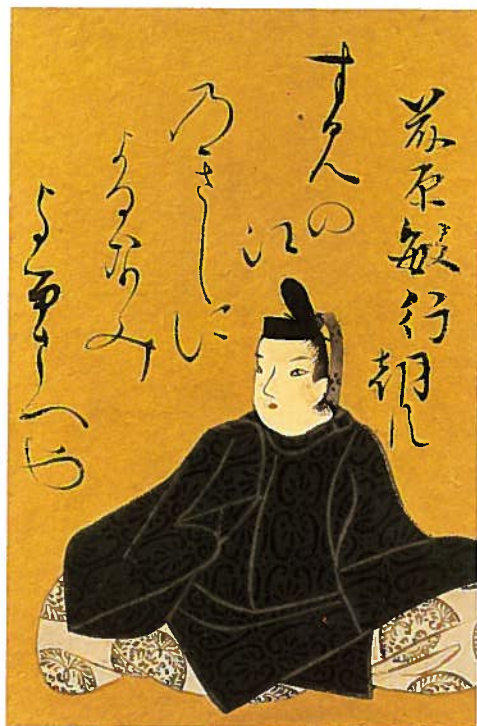 藤原敏行朝臣
すみの
江
乃きしに
よるなみ
よるさへや